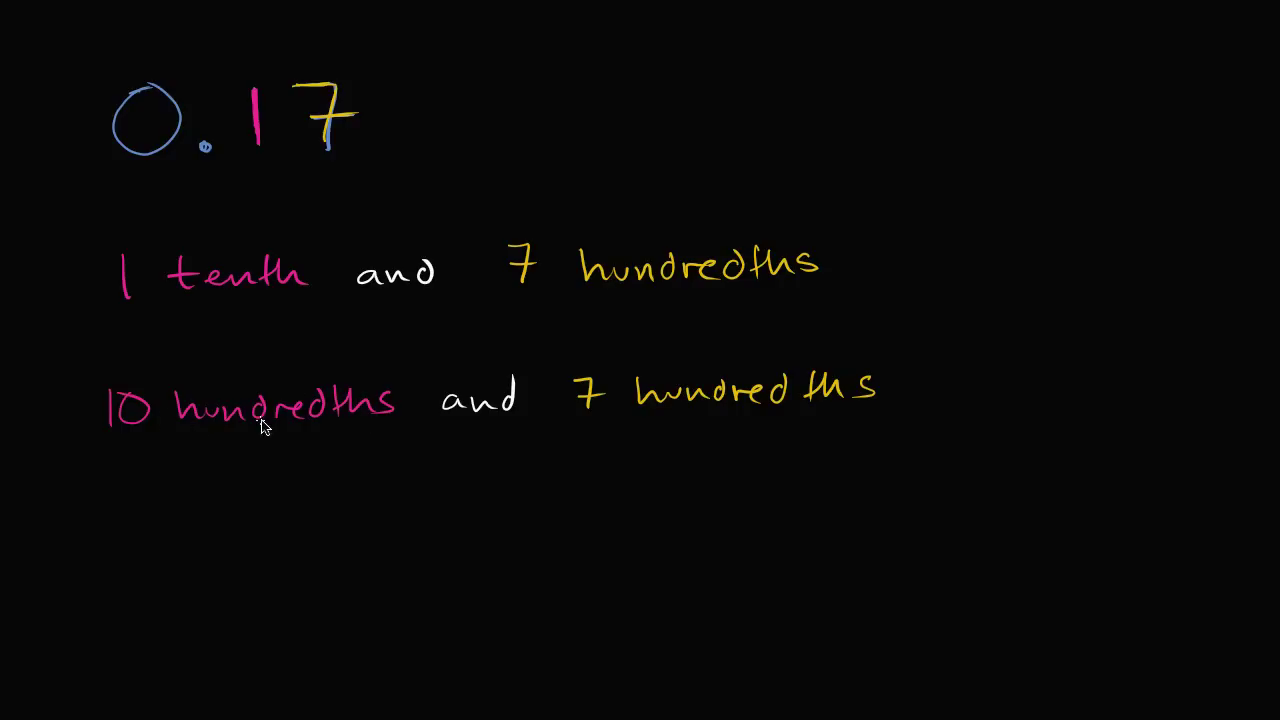 0.17
1 tenth and 7 hundredths
10 hundredths and 7 hundredths